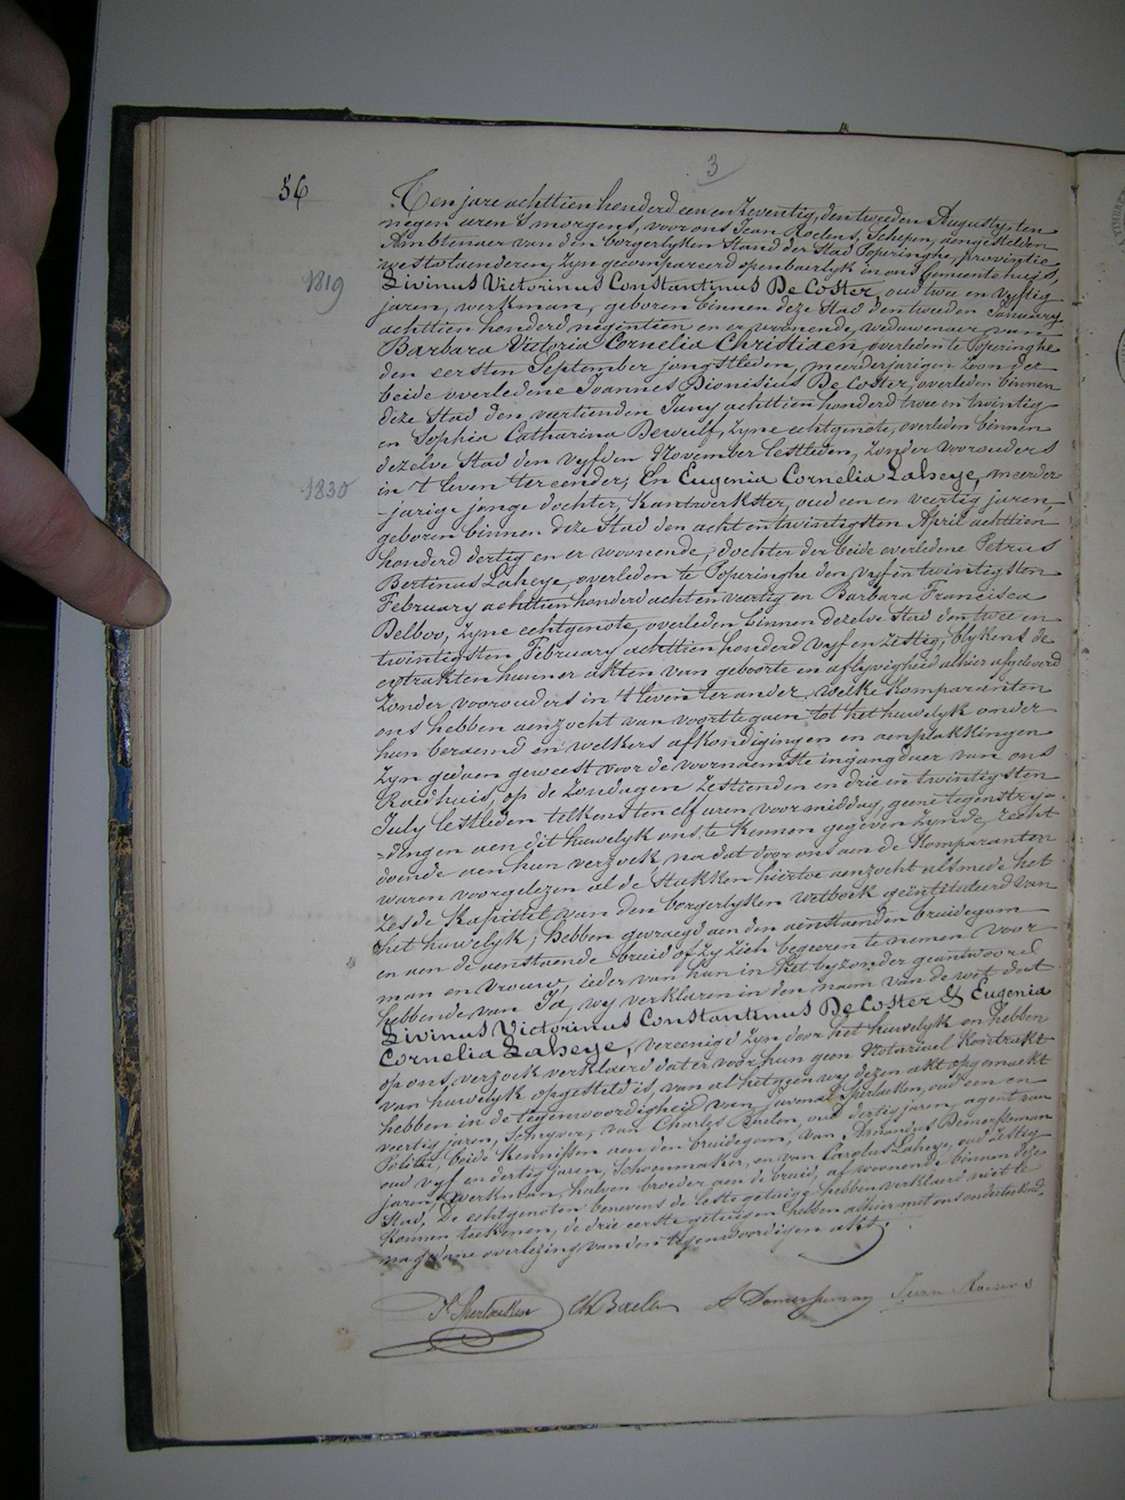 3
56
Ten jare achttien honderd een en zeventig, den tweeden Augusty, ten
negen uren 's morgens, voor ons Jean Roelens, Schepen, aengestelden
Ambtenaer van den borgerlyken Stand der Stad Poperinghe, provintie
westvlaenderen, zyn gecompareerd openbaerlyk in ons Gemeentehuis,
1819
Livinus Victorinus Constantinus De Coster, oud twee en vyftig
jaren, werkman, geboren binnen deze Stad den tweeden January
achttien honderd negentien en er woonende, weduwenaer van
Barbara Victoria Cornelia Christiaen, overleden te Poperinghe
den eersten September jongstleden, meerderjarigen zoon der
beide overledene Joannes Dionisius De Coster, overleden binnen
deze Stad den veertienden Juny achttien honderd twee en twintig
en Sophia Catharina Dewulf, zyne echtgenote, overleden binnen
dezelve Stad den vyfden November lestleden, zonder voorouders
1830
in 't leven ter eender; En Eugenia Cornelia Laheye, meerder-
-jarige jonge dochter, Kantwerkster, oud een en veertig jaren,
geboren binnen deze Stad den acht en twintigsten April achttien
honderd dertig en er woonende, dochter der beide overledene Petrus
Bertinus Laheye, overleden te Poperinghe den vyf en twintigsten
February achttien honderd acht en veertig en Barbara Francisca
Delboo, zyne echtgenote, overleden binnen dezelve Stad den twee en
twintigsten February achttien honderd vyf en zestig, blykens de
extrakten hunner akten van geboorte en aflyvigheid alhier afgeleverd
zonder voorouders in 't leven ter ander, welke Komparanten
ons hebben aenzocht van voorttegaen tot het huwelyk onder
hun beraemd en welkers afkondigingen en aenplakkingen
zyn gedaen geweest voor de voornaemste ingangdeur van ons
Raedhuis, op de zondagen zestienden en drie en twintigsten
July lestleden telkens ten elf uren voormiddag, geene tegenstry-
-dingen aen dit huwelyk ons te kennen gegeven zynde, recht
doende aen hun verzoek, na dat door ons aen de Komparanten
waren voorgelezen al de Stukken hiertoe aenzocht alsmede het
zesde Kapittel van den borgerlyken wetboek geïntituleerd van
het huwelyk; hebben gevraegd aen den aenstaenden bruidegom
en aen de aenstaende bruid of zy zich begeeren te nemen voor
man en vrouw, ieder van hun in het byzonder geantwoord
hebbende van Ja, wy verklaren in den naem van de wet dat
Livinus Victorinus Constantinus De Coster & Eugenia
Cornelia Laheye, vereenigd zyn door het huwelyk en hebben
op ons verzoek verklaerd dat er voor hun geen Notariael Kontrakt
van huwelyk opgesteld is, van al hetgeen wy dezen akt opgemaekt
hebben in de tegenwoordigheid van Juvenal Sperlaeken, oud een en
veertig jaren, Schryver, van Charles Baelen, oud dertig jaren, agent van
Politie, beide Kennissen aen den bruidegom, van Amandus Demersseman
oud vyf en dertig jaren, Schoenmaker, en van Carolus Laheye, oud zestig
jaren, werkman, halven broeder aen de bruid, al woonende binnen deze
Stad. De echtgenoten benevens de leste getuige hebben verklaerd niet te
konnen teekenen, de drie eerste getuigen hebben alhier met ons onderteekend,
na gedane overlezing van den tegenwoordigen akt.
Ch Baelen
Jean Roelens